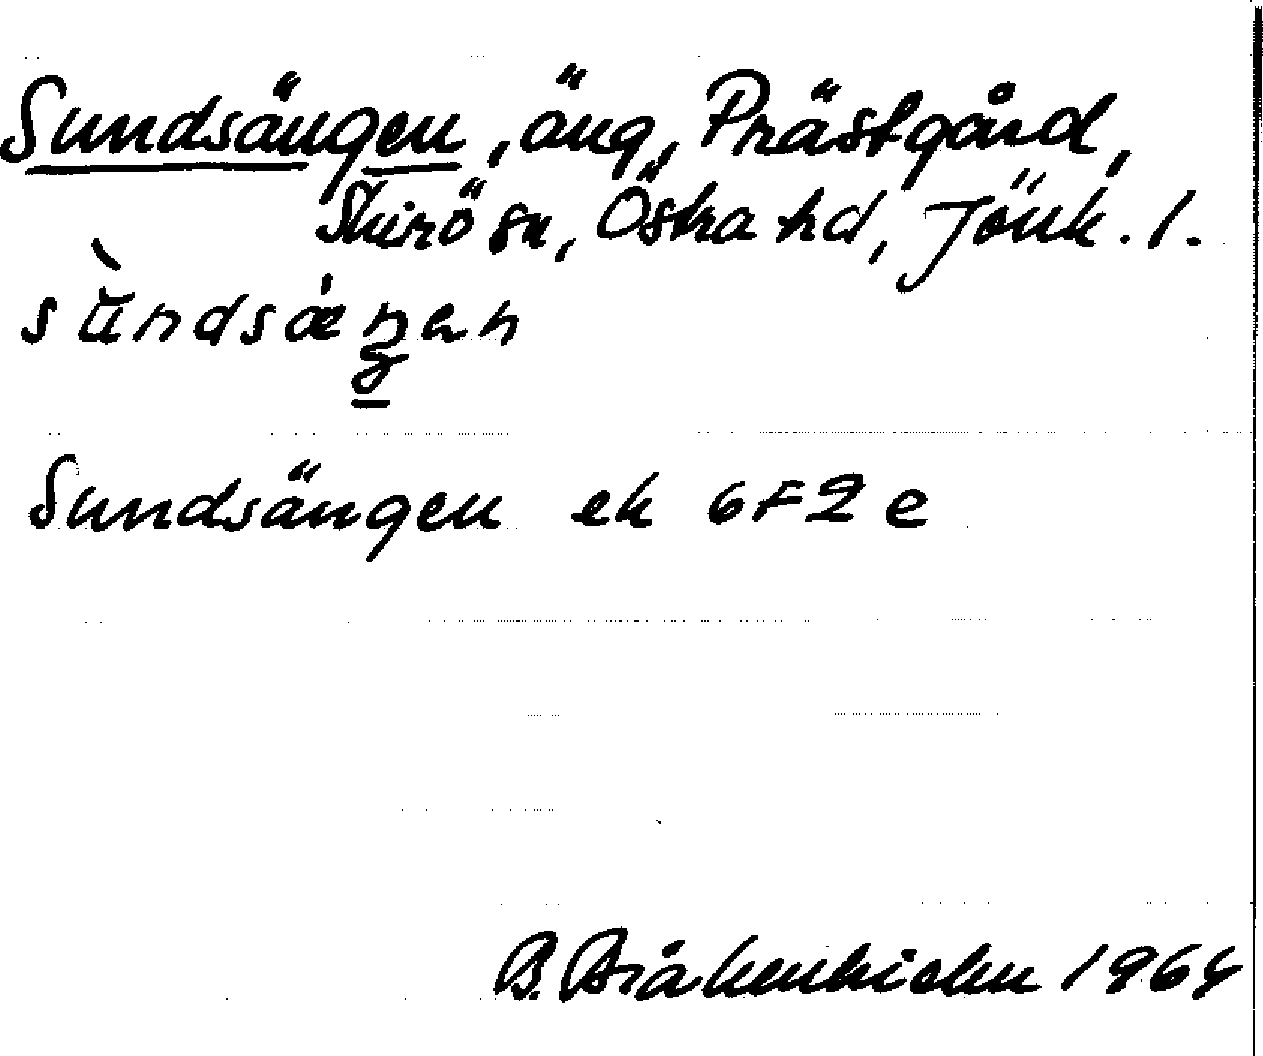 Sundsängen, äng, Prästgård,
Skirö sn, Östra hd, Jönk. l.
sùndsæŋen
Sundsängen ek 6F2e
B. 1964